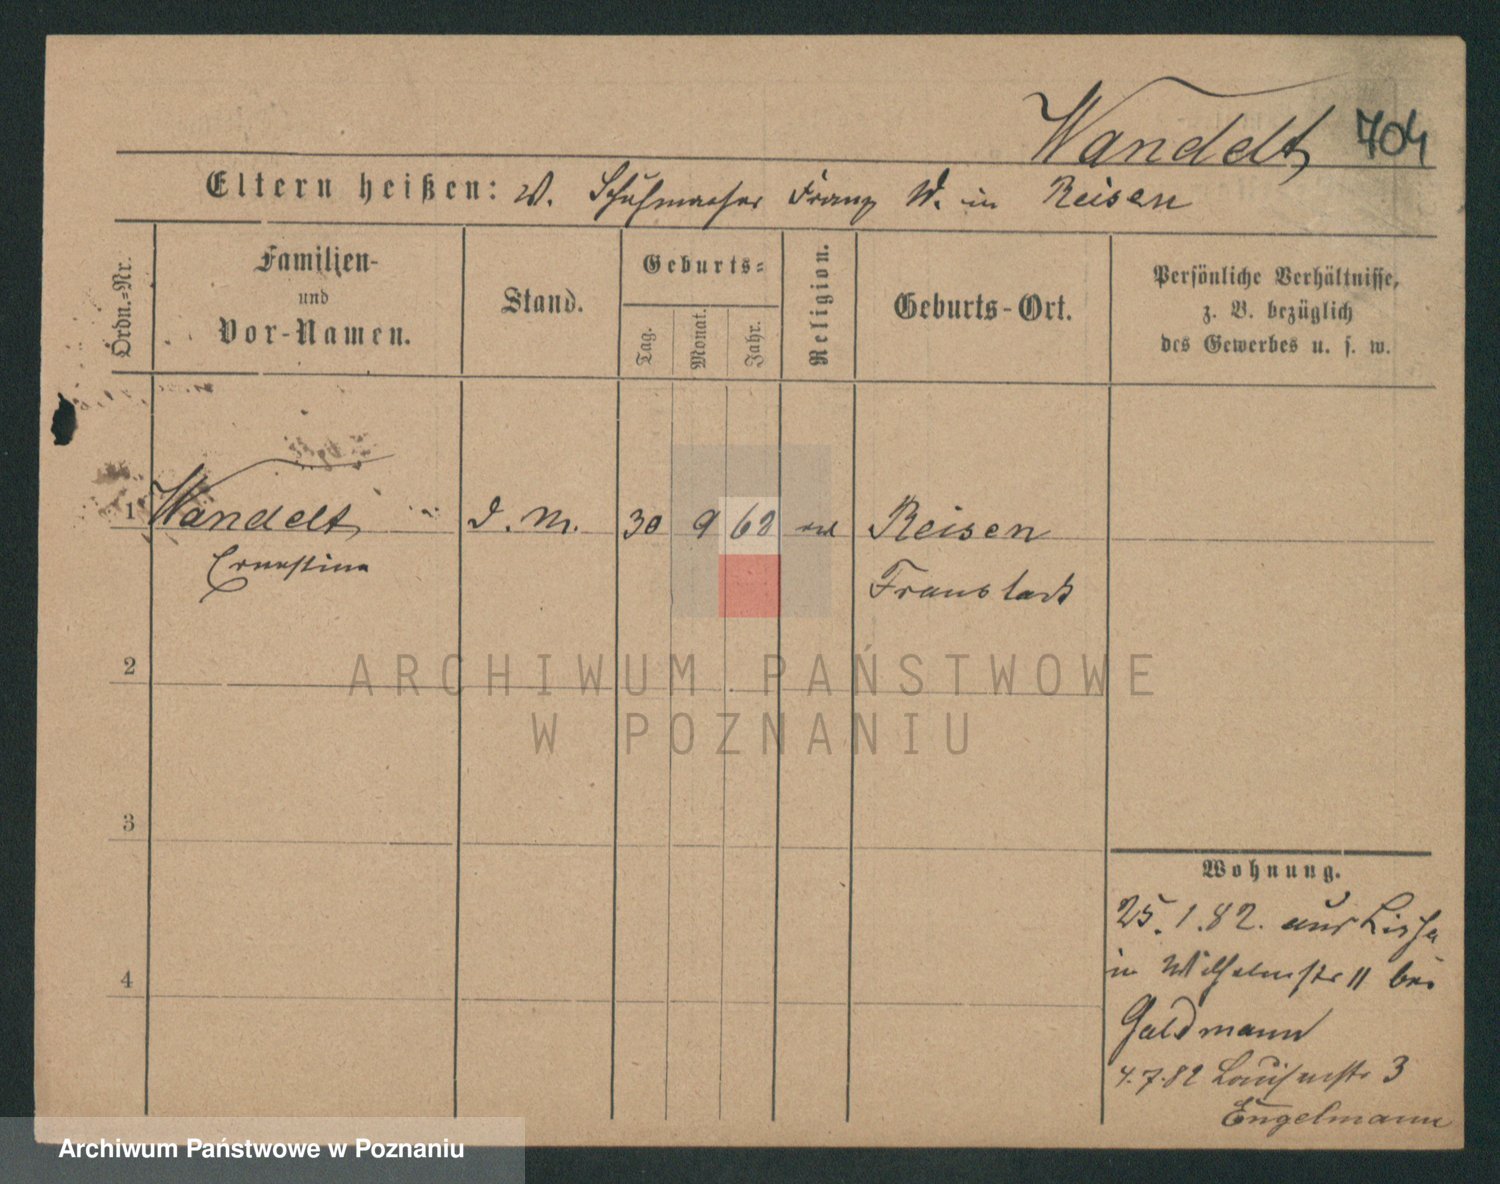 Wandelt 704
Eltern heißen: W. Schuhmacher Franz W. in Reisen
Ordn.=Nr.
Familien-
und
Vor-Namen.
Stand.
Geburts=
Tag.
Monat.
Jahr.
Religion.
Geburts-Ort.
Persönliche Verhältnisse,
z. B. bezüglich
des Gewerbes u. s. w.
1 Wandelt D. M. 30 9 62 Reisen
Ernestine Fraustadt
2
ARCHIWUM PAŃSTWOWE
W POZNANIU
3
4
Wohnung.
25.1.82. aus Lissa
in Wilhelmstr 11 bei
Goldmann
4.7.82 Louisenstr 3
Engelmann
Archiwum Państwowe w Poznaniu